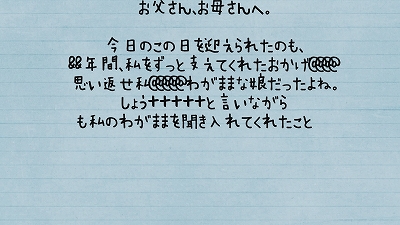 お父さん、お母さんへ。
今日のこの日を迎えられたのも、
年間、私をずっと支えてくれたおかげ
思い返せ私わがままな娘だったよね。
しょう+++++と言いながら
も私のわがままを聞き入れてくれたこと